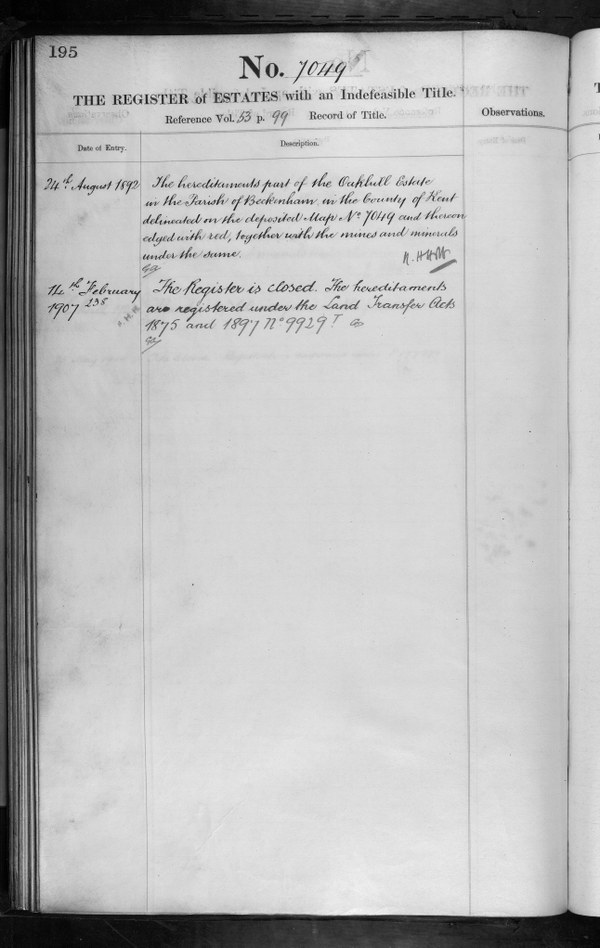 195
No. 7049
THE REGISTER of ESTATES with an Indefeasible Title.
Reference Vol. 53 p. 99 Record of Title.
Observations.
Date of Entry.
Description.
24th August 1892
The hereditaments part of the Oakhill Estate
in the Parish of Beckenham in the County of Kent
delineated on the deposited Map No 7049 and thereon
edged with red, together with the mines and minerals
under the same.
14th February
1907 238
The Register is closed. The hereditaments
are registered under the Land Transfer Acts
1875 and 1897 No 9929 T